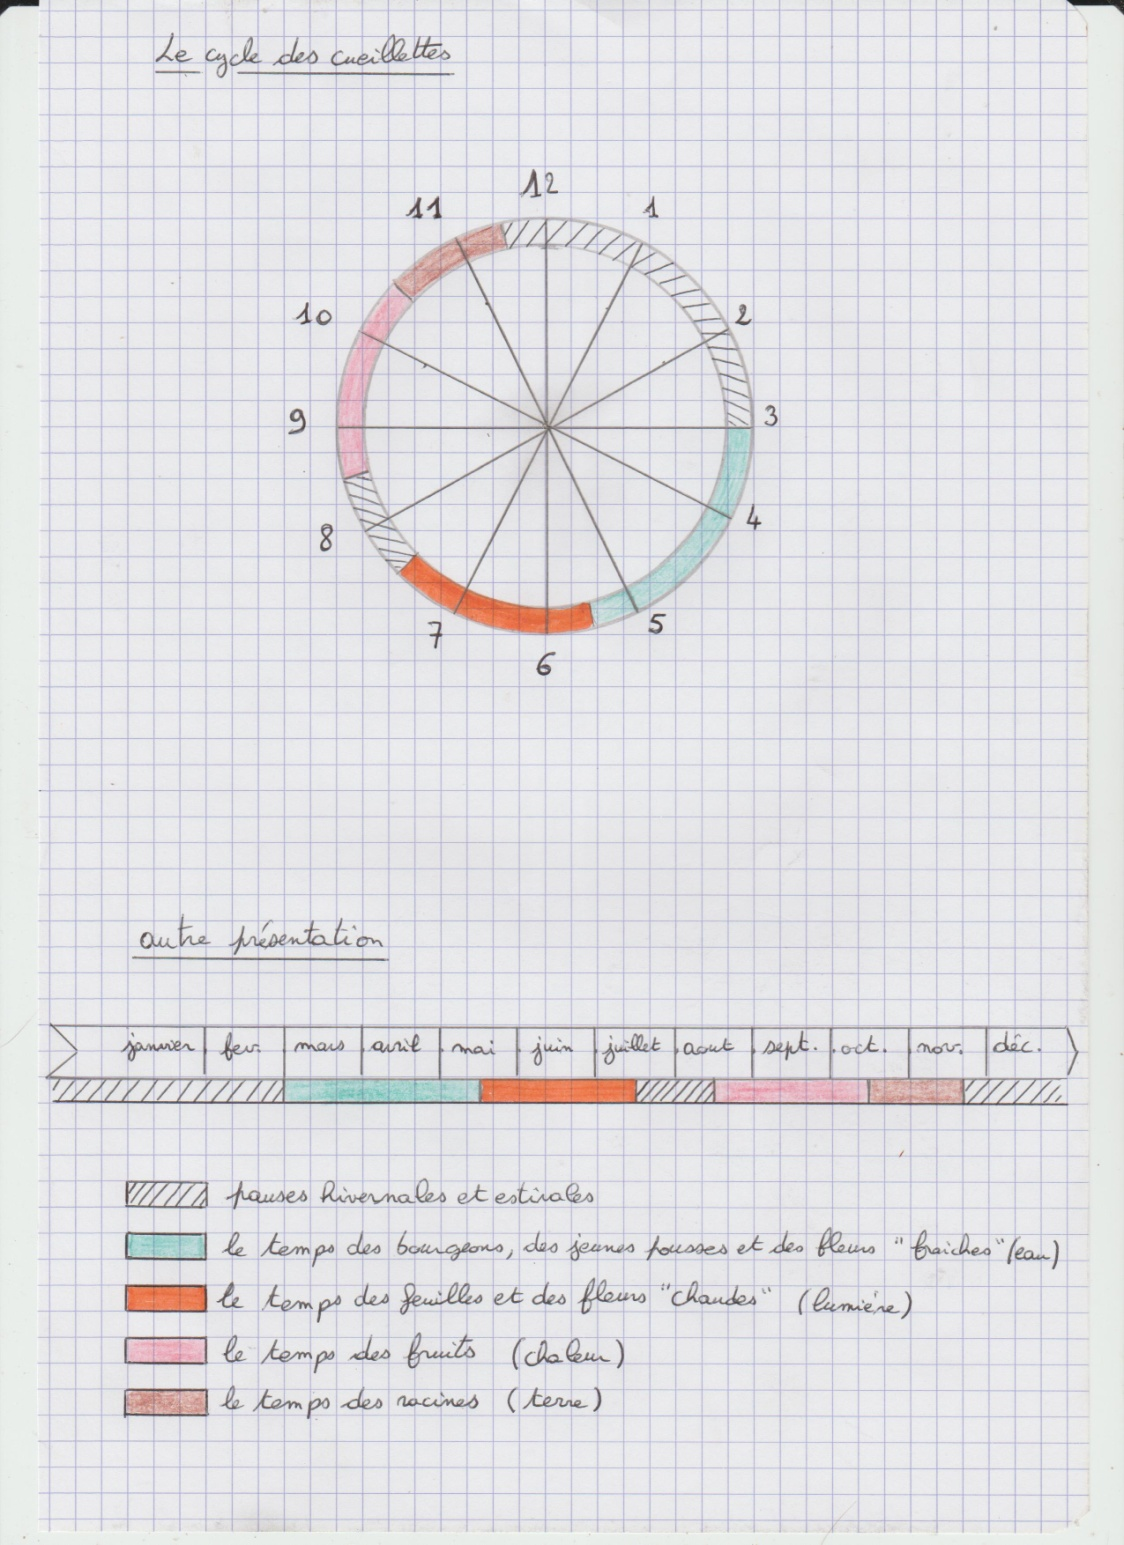 Le cycle des cueillettes
12
11
1
10
2
9
3
8
4
7
5
6
autre présentation
janvier fev. mars avril mai juin juillet aout sept. oct. nov. déc.
pauses hivernales et estivales
le temps des bourgeons, des jeunes pousses et des fleurs "fraiches" (eau)
le temps des feuilles et des fleurs "chaudes" (lumière)
le temps des fruits (chaleur)
le temps des racines (terre)